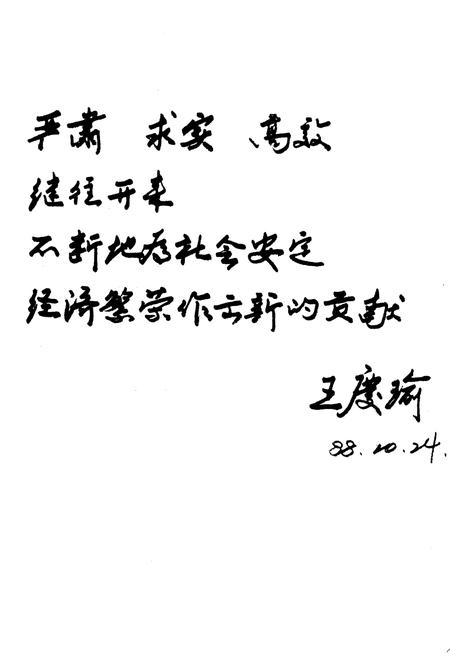 严肃 求实 高效
继往开来
不断地为社会安定
经济繁荣作出新的贡献
王庆瑜
88.10.24.